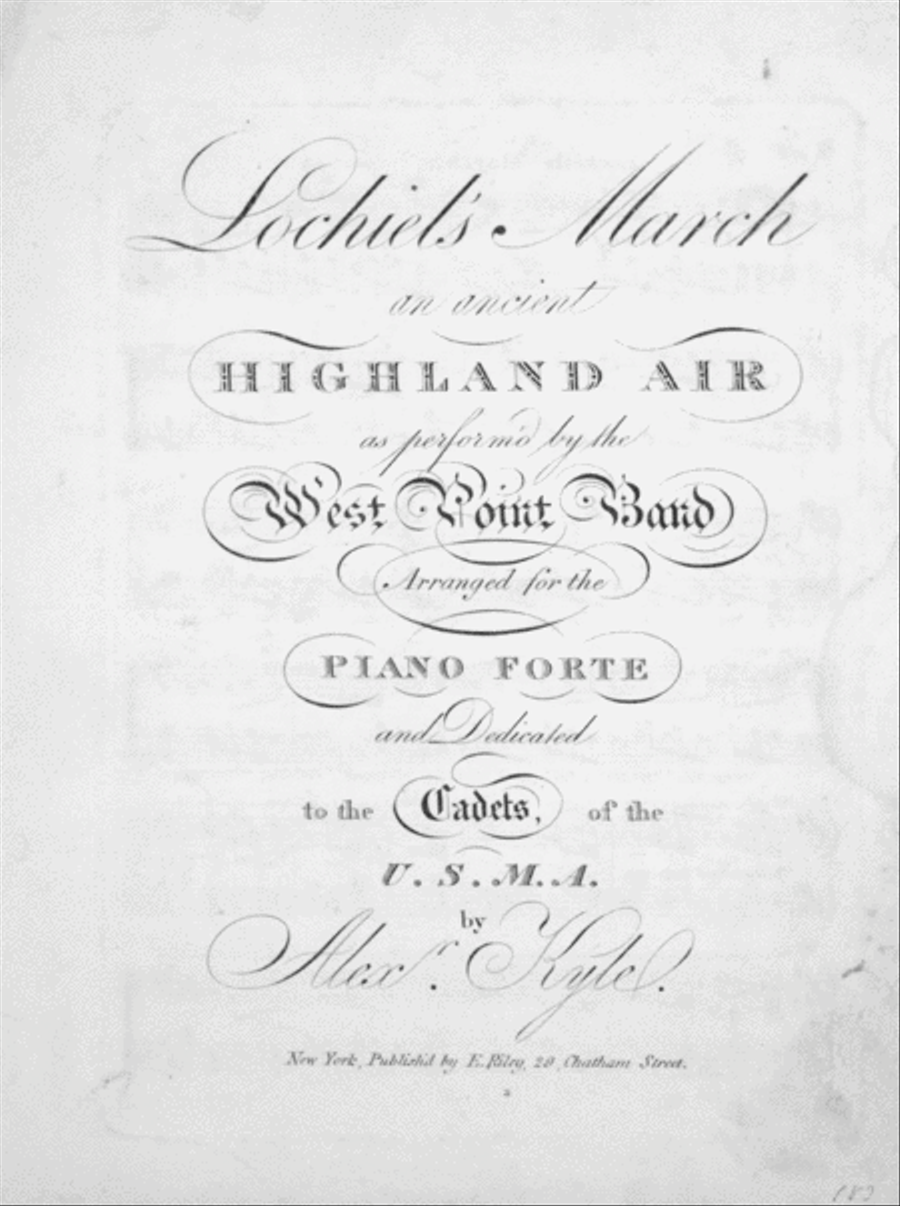 Lochiel's March
an ancient
HIGHLAND AIR
as perform'd by the
West Point Band
Arranged for the
PIANO FORTE
and Dedicated
to the Cadets, of the
U. S. M. A.
by
Alexr. Kyle.
New York, Publish'd by E. Riley, 29, Chatham Street.